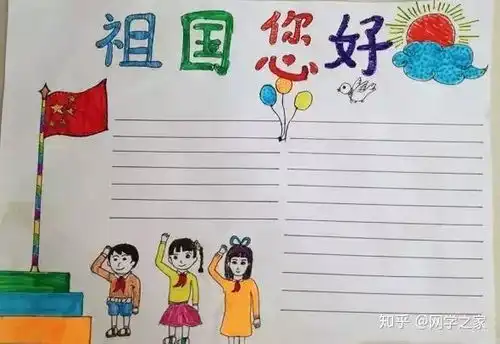 祖国您好
知乎 @网学之家